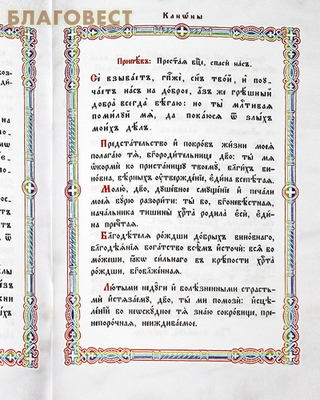 БЛАГОВЕСТ
Канѡ́ны
Припѣ́въ: Прест҃а́ѧ бц҃е, спасѝ на́съ.
Сѐ взыва́етъ, гж҃е, сн҃ъ тво́й, и҆ поꙋ-
ча́етъ на́съ на до́брое, а҆́зъ же грѣ́шный
добра̀ всегда̀ бѣ́гаю: но ты̀ млⷭ҇тиваѧ
поми́лꙋй мѧ̀, да пока́юсѧ ѿ ѕлы́хъ
мои́хъ дѣ́лъ.
Предста́тельство и҆ покро́въ жи́зни моеѧ̀
полага́ю тѧ̀, бг҃ороди́тельнице дв҃о: ты̀ мѧ̀
ѡ҆кормѝ ко приста́нищꙋ твоемꙋ̀, благи́хъ вино́-
вна, вѣ́рныхъ ᲂу҆твержде́нїе, є҆ди́на всепѣ́таѧ.
Молю̀, дв҃о, дꙋше́вное смꙋще́нїе и҆ печа́ли
моеѧ̀ бꙋ́рю разори́ти: ты́ бо, бг҃оневѣ́стнаѧ,
нача́льника тишины̀ хрⷭ҇та̀ родила̀ є҆сѝ, є҆ди́-
на пречⷭ҇таѧ.
Благодѣ́телѧ ро́ждши до́брыхъ вино́внаго,
благодѣѧ́нїѧ бога́тство всѣ̑мъ и҆сточѝ: всѧ̑ бо
мо́жеши, ꙗ҆́кѡ си́льнаго въ крѣ́пости хрⷭ҇та̀
ро́ждши, бг҃обл҃же́ннаѧ.
Лю́тыми недꙋ̑ги и҆ болѣ́зненными страстьмѝ
и҆стѧза́емꙋ, дв҃о, ты̀ ми помозѝ: и҆сцѣле́-
нїй бо неѡскꙋ́дное тѧ̀ зна́ю сокро́вище, пре-
непоро́чнаѧ, неижива́емое.